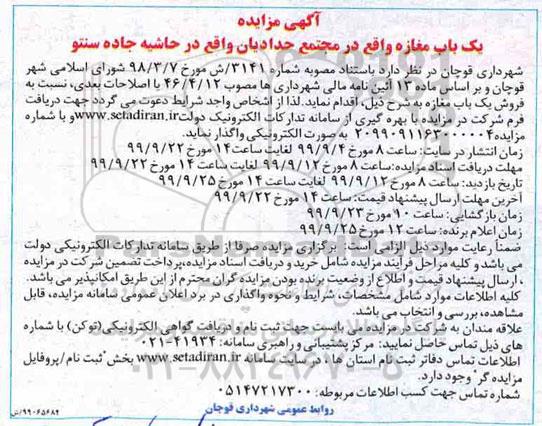 آگهی مزایده
یک باب مغازه واقع در مجتمع حدادیان واقع در حاشیه جاده سنتو
شهرداری قوچان در نظر دارد باستناد مصوبه شماره ۳۱۴۱/ش مورخ ۹۸/۳/۷ شورای اسلامی شهر
قوچان و بر اساس ماده ۱۳ آئین نامه مالی شهرداری ها مصوب ۴۶/۴/۱۲ با اصلاحات بعدی، نسبت به
فروش یک باب مغازه به شرح ذیل، اقدام نماید. لذا از اشخاص واجد شرایط دعوت می گردد جهت دریافت
فرم شرکت در مزایده با بهره گیری از سامانه تدارکات الکترونیک دولت www.setadiran.ir و با شماره
مزایده ۲۰۹۹۰۹۱۱۶۳۰۰۰۰۰۴ به صورت الکترونیکی واگذار نماید.
زمان انتشار در سایت: ساعت ۸ مورخ ۹۹/۹/۴ لغایت ساعت ۱۴ مورخ ۹۹/۹/۲۲
مهلت دریافت اسناد مزایده: ساعت ۸ مورخ ۹۹/۹/۱۲ لغایت ساعت ۱۴ مورخ ۹۹/۹/۲۲
تاریخ بازدید: ساعت ۸ مورخ ۹۹/۹/۱۲ لغایت ساعت ۱۴ مورخ ۹۹/۹/۲۵
آخرین مهلت ارسال پیشنهاد قیمت: ساعت ۱۴ مورخ ۹۹/۹/۲۲
زمان بازگشایی: ساعت ۹۰ مورخ ۹۹/۹/۲۳
زمان اعلام برنده: ساعت ۱۲ مورخ ۹۹/۹/۲۵
ضمناً رعایت موارد ذیل الزامی است: برگزاری مزایده صرفا از طریق سامانه تدارکات الکترونیکی دولت
می باشد و کلیه مراحل فرآیند مزایده شامل خرید و دریافت اسناد مزایده، پرداخت تضمین شرکت در مزایده
، ارسال پیشنهاد قیمت و اطلاع از وضعیت برنده بودن مزایده گران محترم از این طریق امکانپذیر می باشد.
کلیه اطلاعات موارد شامل مشخصات، شرایط و نحوه واگذاری در برد اعلان عمومی سامانه مزایده، قابل
مشاهده، بررسی و انتخاب می باشد.
علاقه مندان به شرکت در مزایده می بایست جهت ثبت نام و دریافت گواهی الکترونیکی (توکن) با شماره
های ذیل تماس حاصل نمایید: مرکز پشتیبانی و راهبری سامانه: ۴۱۹۳۴-۰۲۱
اطلاعات تماس دفاتر ثبت نام استان ها، در سایت سامانه www.setadiran.ir بخش "ثبت نام/پروفایل
مزایده گر" وجود دارد.
شماره تماس جهت کسب اطلاعات مربوطه: ۰۵۱۴۷۲۱۷۳۰۰
روابط عمومی شهرداری قوچان
۹۹۰۶۵۶۸۴/ش